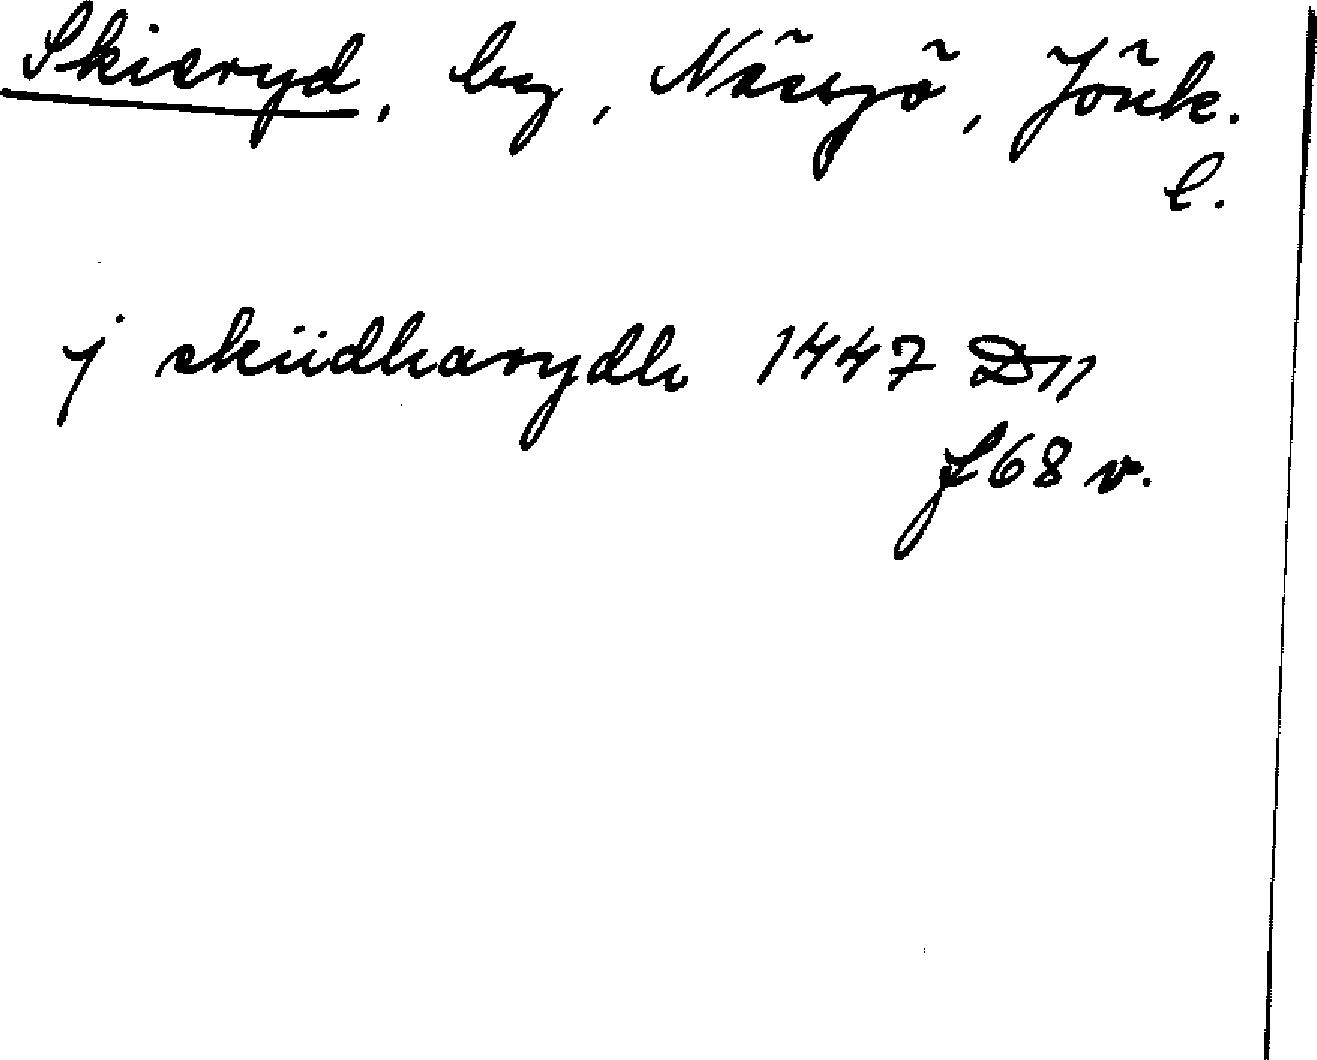 Skieryd, by, Nässjö, Jönk.
l.
j skiidharydh 1447 D11
f 68 v.